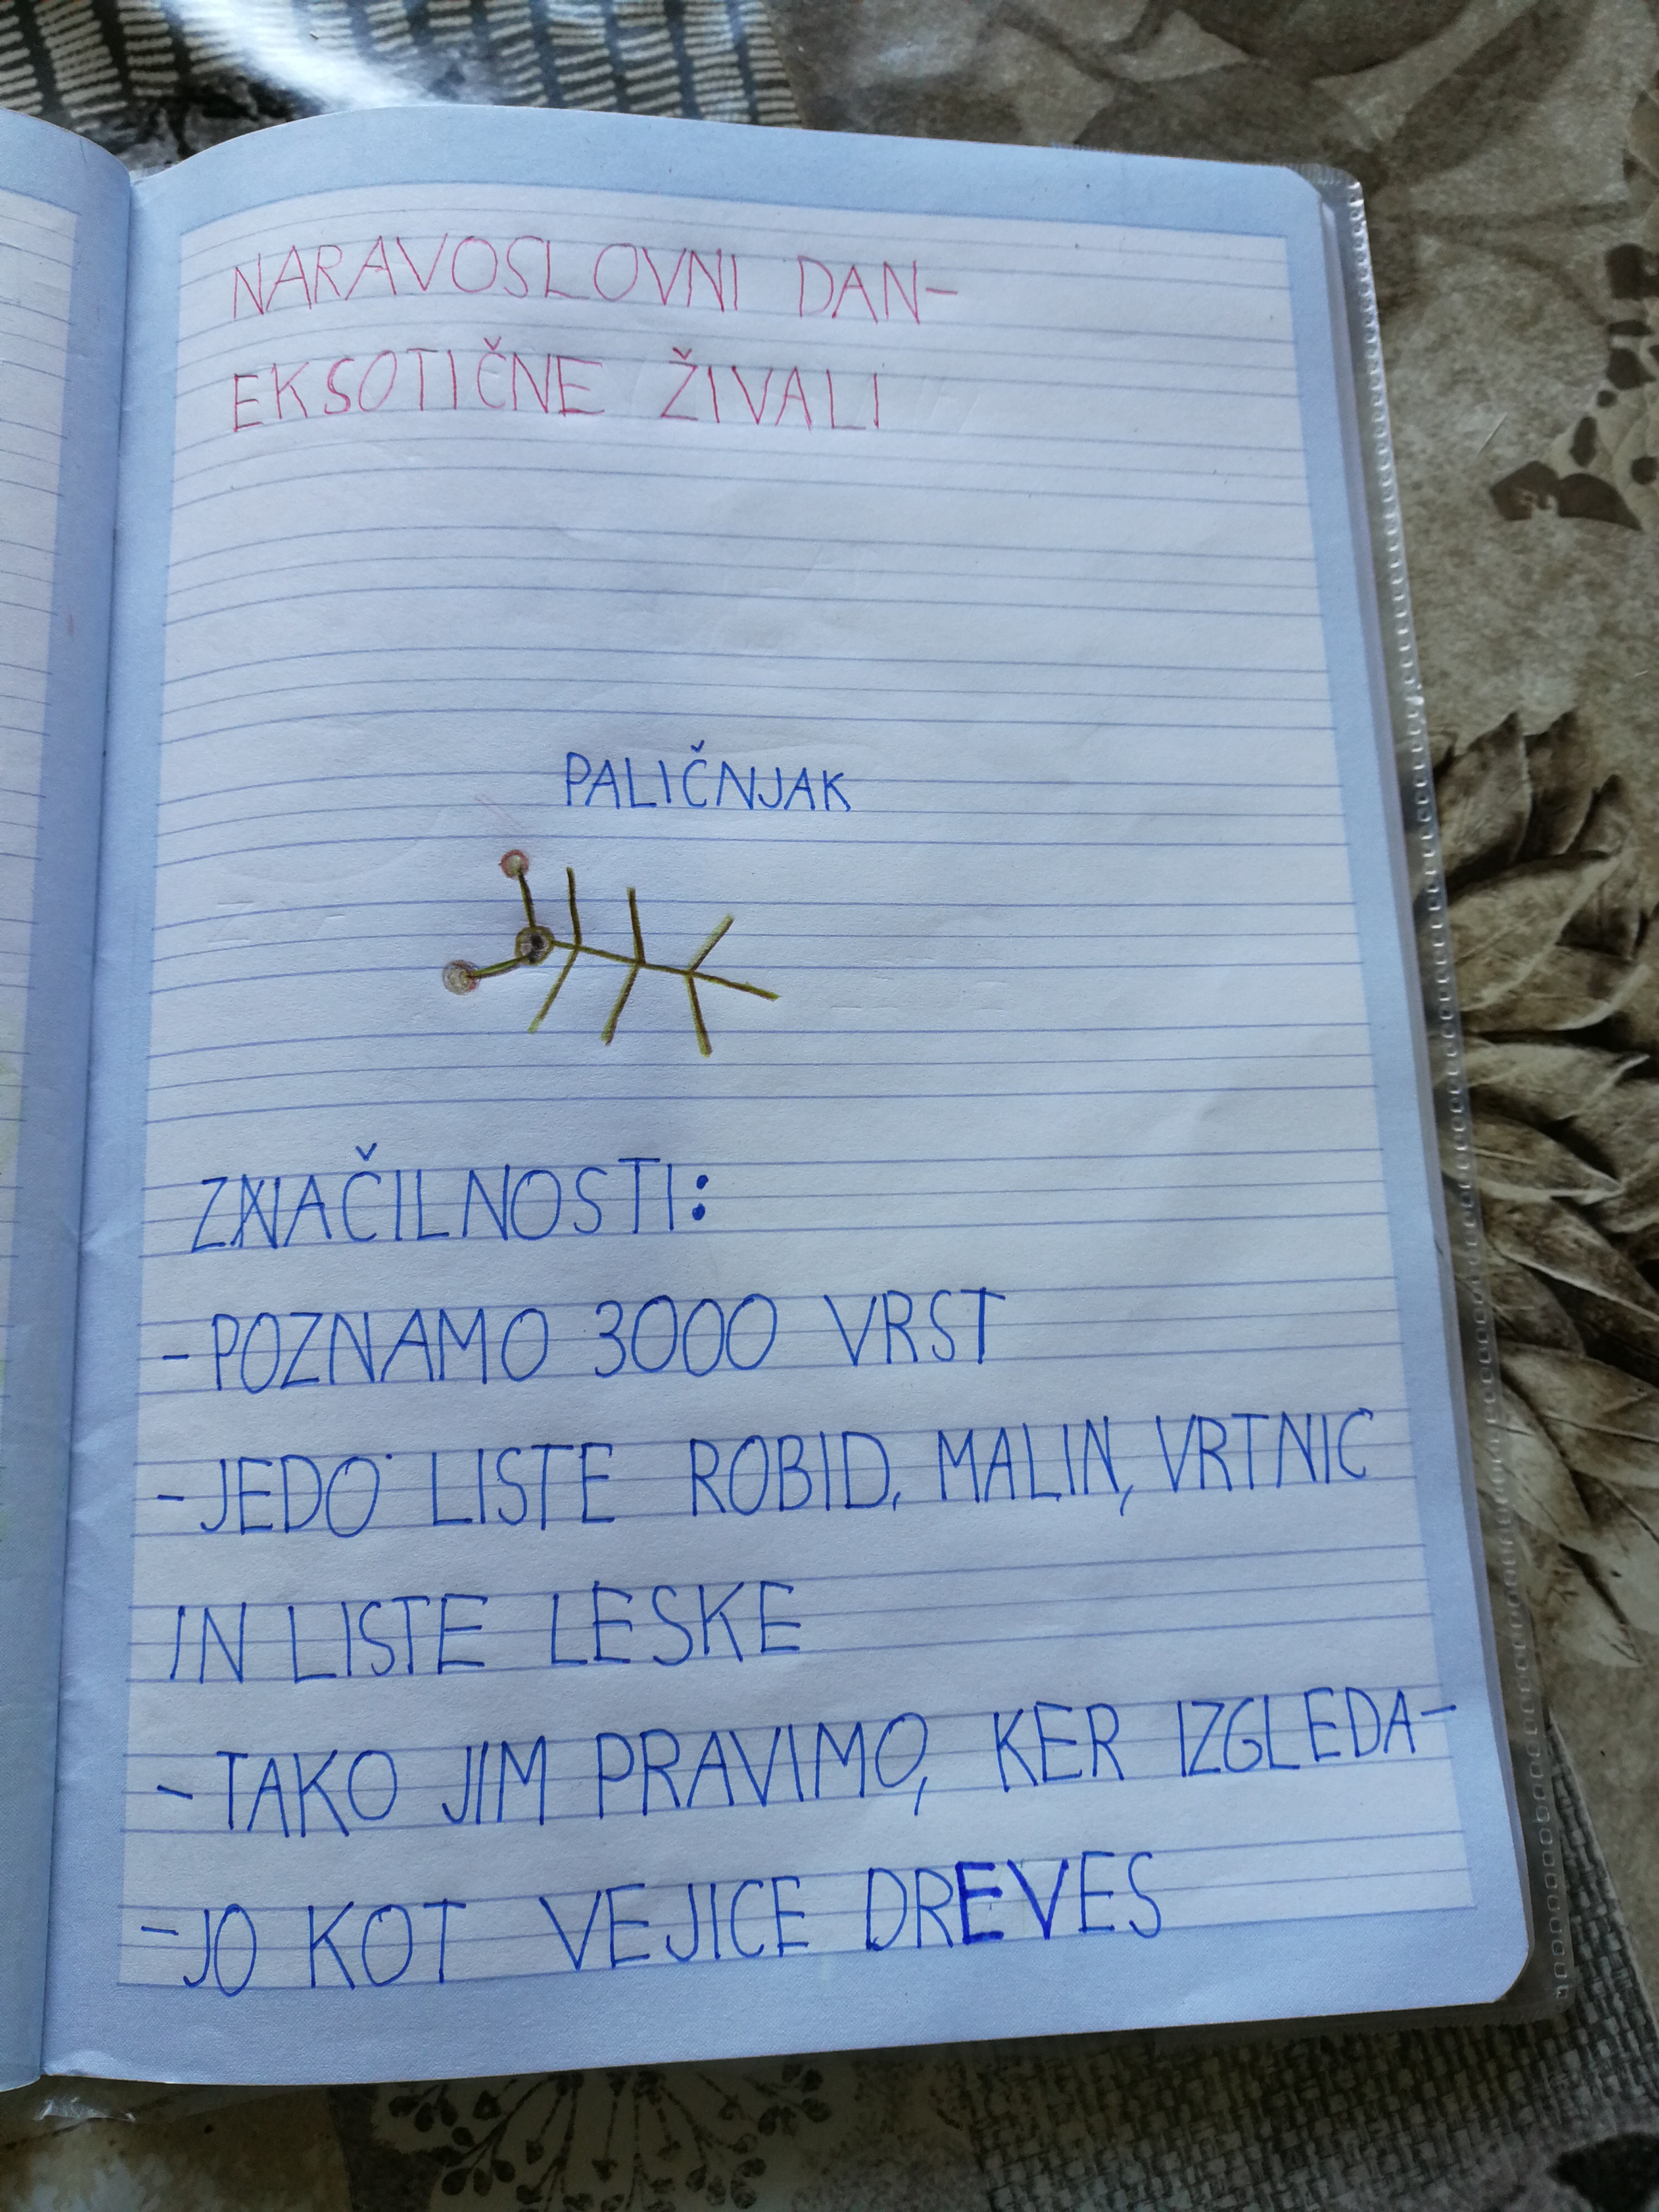 NARAVOSLOVNI DAN-
EKSOTIČNE ŽIVALI
PALIČNJAK
ZNAČILNOSTI:
-POZNAMO 3000 VRST
-JEDO LISTE ROBID, MALIN, VRTNIC
IN LISTE LESKE
-TAKO JIM PRAVIMO, KER IZGLEDA-
-JO KOT VEJICE DREVES